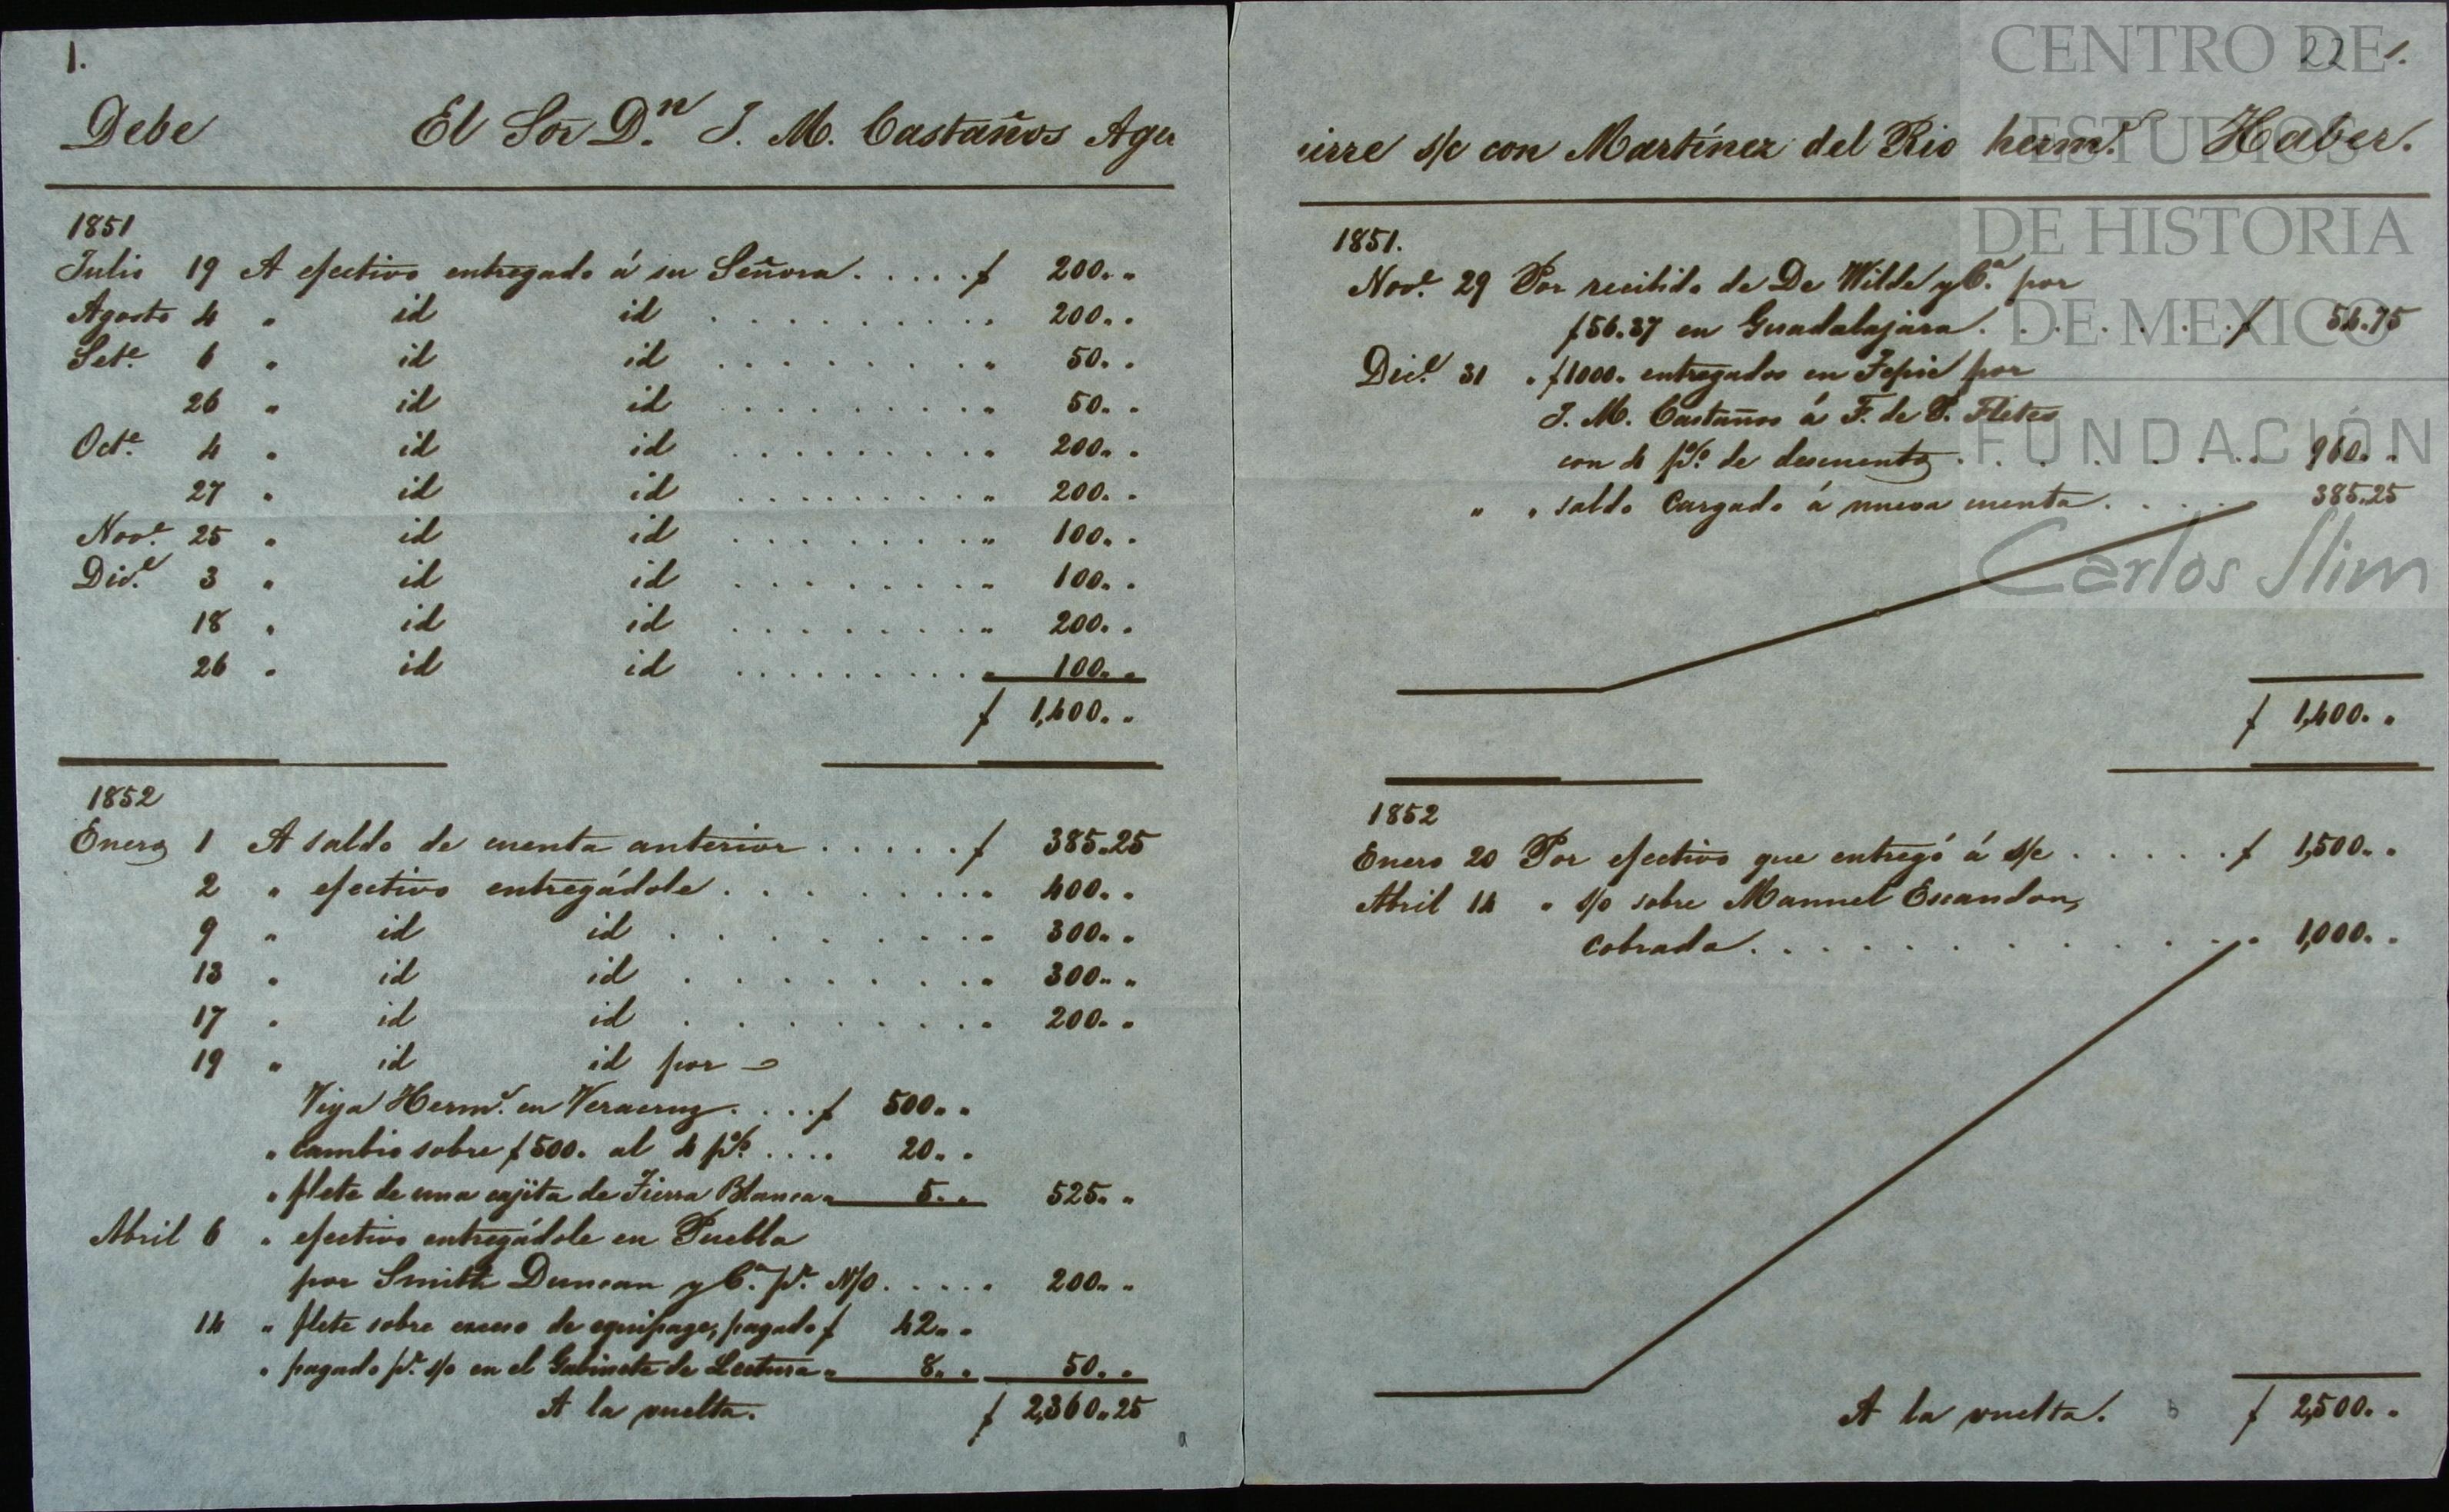 1.
Debe El Sor D.n J. M. Castaños Agu
1851
Julio 19 A efectivo entregado á su Señora. . . . . $ 200. .
Agosto 4 " id id . . . . . . . . . . " 200. .
Sete. 6 " id id . . . . . . . . . " 50. .
26 " id id . . . . . . . . . " 50. .
Octe. 4 " id id . . . . . . . . . " 200. .
27 " id id . . . . . . . . . " 200. .
Nove. 25 " id id . . . . . . . . . " 100. .
Dice. 3 " id id . . . . . . . . . " 100. .
18 " id id . . . . . . . . . " 200. .
26 " id id . . . . . . . . . " 100. .
$ 1,400. .
1852
Enero 1 A saldo de cuenta anterior . . . . . $ 385.25
2 " efectivo entregádole . . . . . . . . " 400. .
9 " id id . . . . . . . . " 300. .
13 " id id . . . . . . . . " 300. .
17 " id id . . . . . . . . " 200. .
19 " id id por
Viya Herms. en Veracruz. . . . $ 500. .
" cambio sobre $500. al 4 p%. . . . . 20. .
" flete de una cajita de Tierra Blanca " 5. . 525. .
Abril 6 " efectivo entregádole en Puebla
por Smith Duncan y Ca. pr. N/o. . . . . 200. .
14 " flete sobre exceso de equipage, pagado $ 42. .
" pagado pr. s/o en el Gabinete de Lectura " 8. . 50. .
A la vuelta. $ 2,360.25
a
22 1.
irre s/c con Martínez del Rio herms. Haber.
1851.
Nove. 29 Por recibido de De Wilde y Ca. por
$56.37 en Guadalajara. . . . . . . $ 54.75
Dice. 31 " $1000. entregados en Tepic por
J. M. Castaños á F. de P. Fletes
con 4 p%. de descuento . . . . . . . . 960. .
" " saldo Cargado á nueva cuenta. . . . . 385.25
$ 1,400. .
1852
Enero 20 Por efectivo que entregó á s/c . . . . . . $ 1,500. .
Abril 14 " s/o sobre Manuel Escandon,
cobrada. . . . . . . . . . . . . 1,000. .
A la vuelta. b $ 2,500. .
CENTRO DE
ESTUDIOS
DE HISTORIA
DE MEXICO
FUNDACIÓN
Carlos Slim